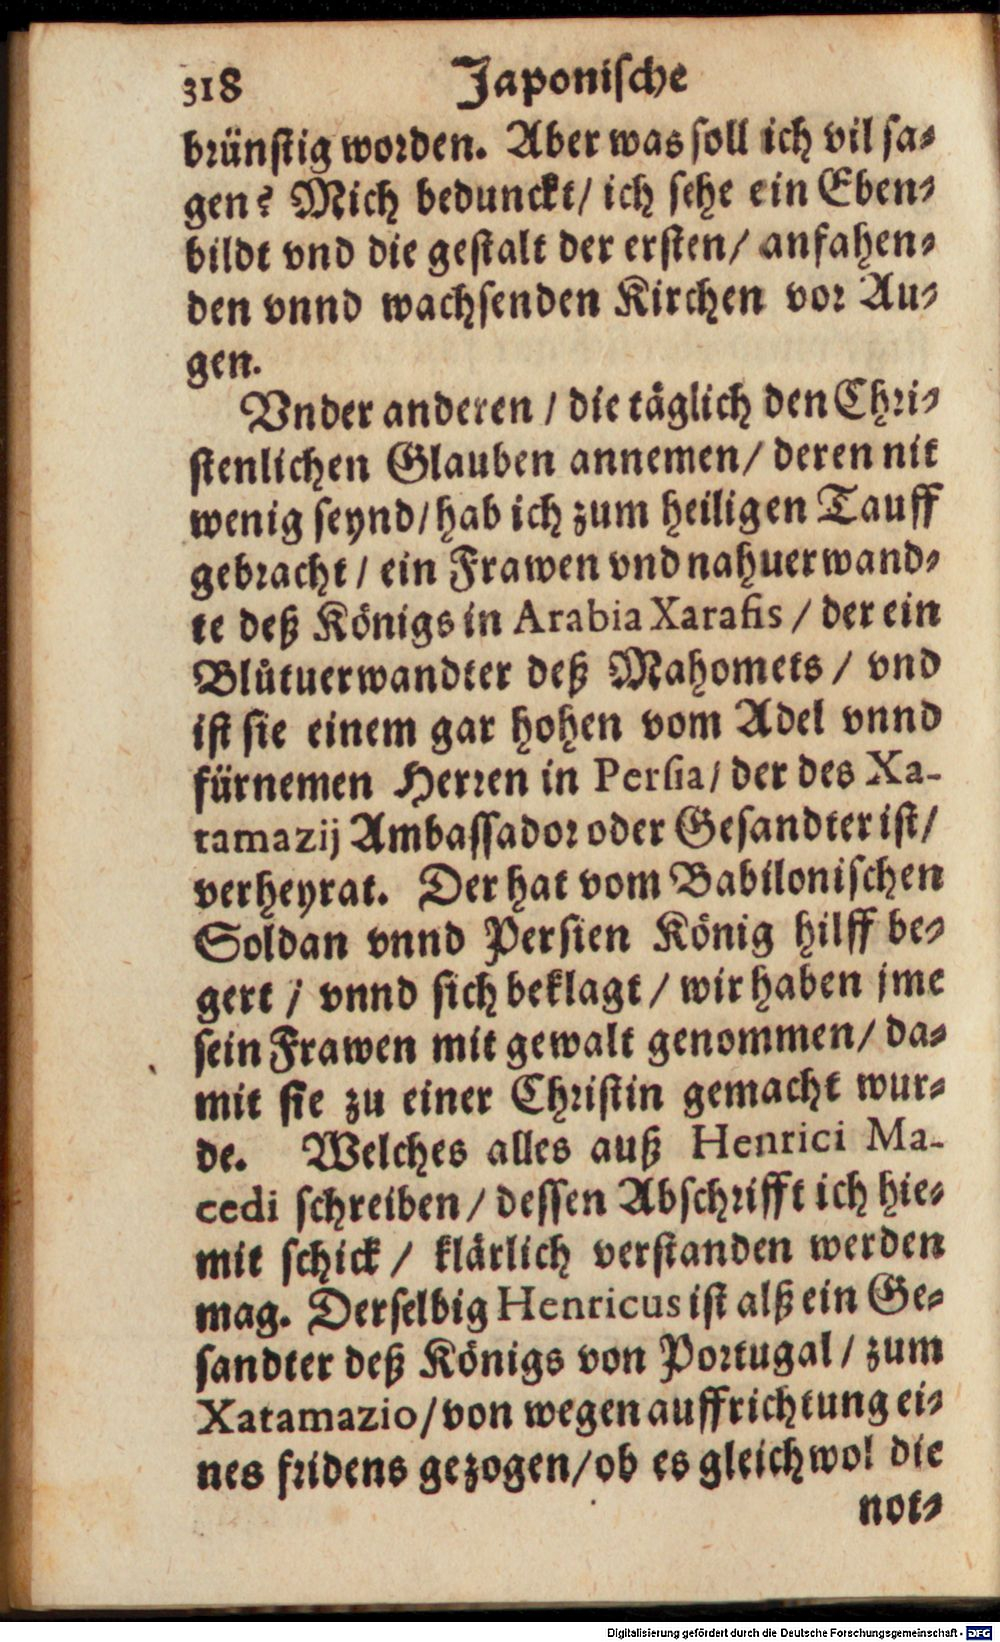 318 Japonische
brünstig worden. Aber was soll ich vil sa-
gen? Mich bedunckt/ ich sehe ein Eben-
bildt vnd die gestalt der ersten/ anfahen-
den vnnd wachsenden Kirchen vor Au-
gen.
Vnder anderen / die täglich den Chri-
stenlichen Glauben annemen/ deren nit
wenig seynd/ hab ich zum heiligen Tauff
gebracht / ein Frawen vnd nahuerwand-
te deß Königs in Arabia Xarafis / der ein
Blůtuerwandter deß Mahomets / vnd
ist sie einem gar hohen vom Adel vnnd
fürnemen Herren in Persia/ der des Xa-
tamazij Ambassador oder Gesandter ist/
verheyrat. Der hat vom Babilonischen
Soldan vnnd Persien König hilff be-
gert / vnnd sich beklagt / wir haben jme
sein Frawen mit gewalt genommen/ da-
mit sie zu einer Christin gemacht wur-
de. Welches alles auß Henrici Ma-
cedi schreiben / dessen Abschrifft ich hie-
mit schick / klärlich verstanden werden
mag. Derselbig Henricus ist alß ein Ge-
sandter deß Königs von Portugal / zum
Xatamazio/ von wegen auffrichtung ei-
nes fridens gezogen/ ob es gleichwol die
not-
Digitalisierung gefördert durch die Deutsche Forschungsgemeinschaft - DFG